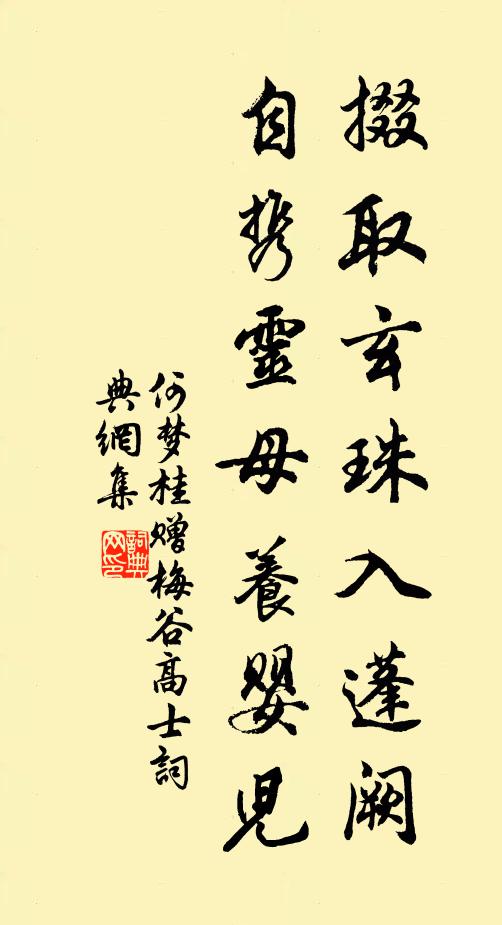 掇取玄珠入蓬阙
自携靈母養嬰兒
何梦桂赠梅谷高士詞
典網集
詞典网印